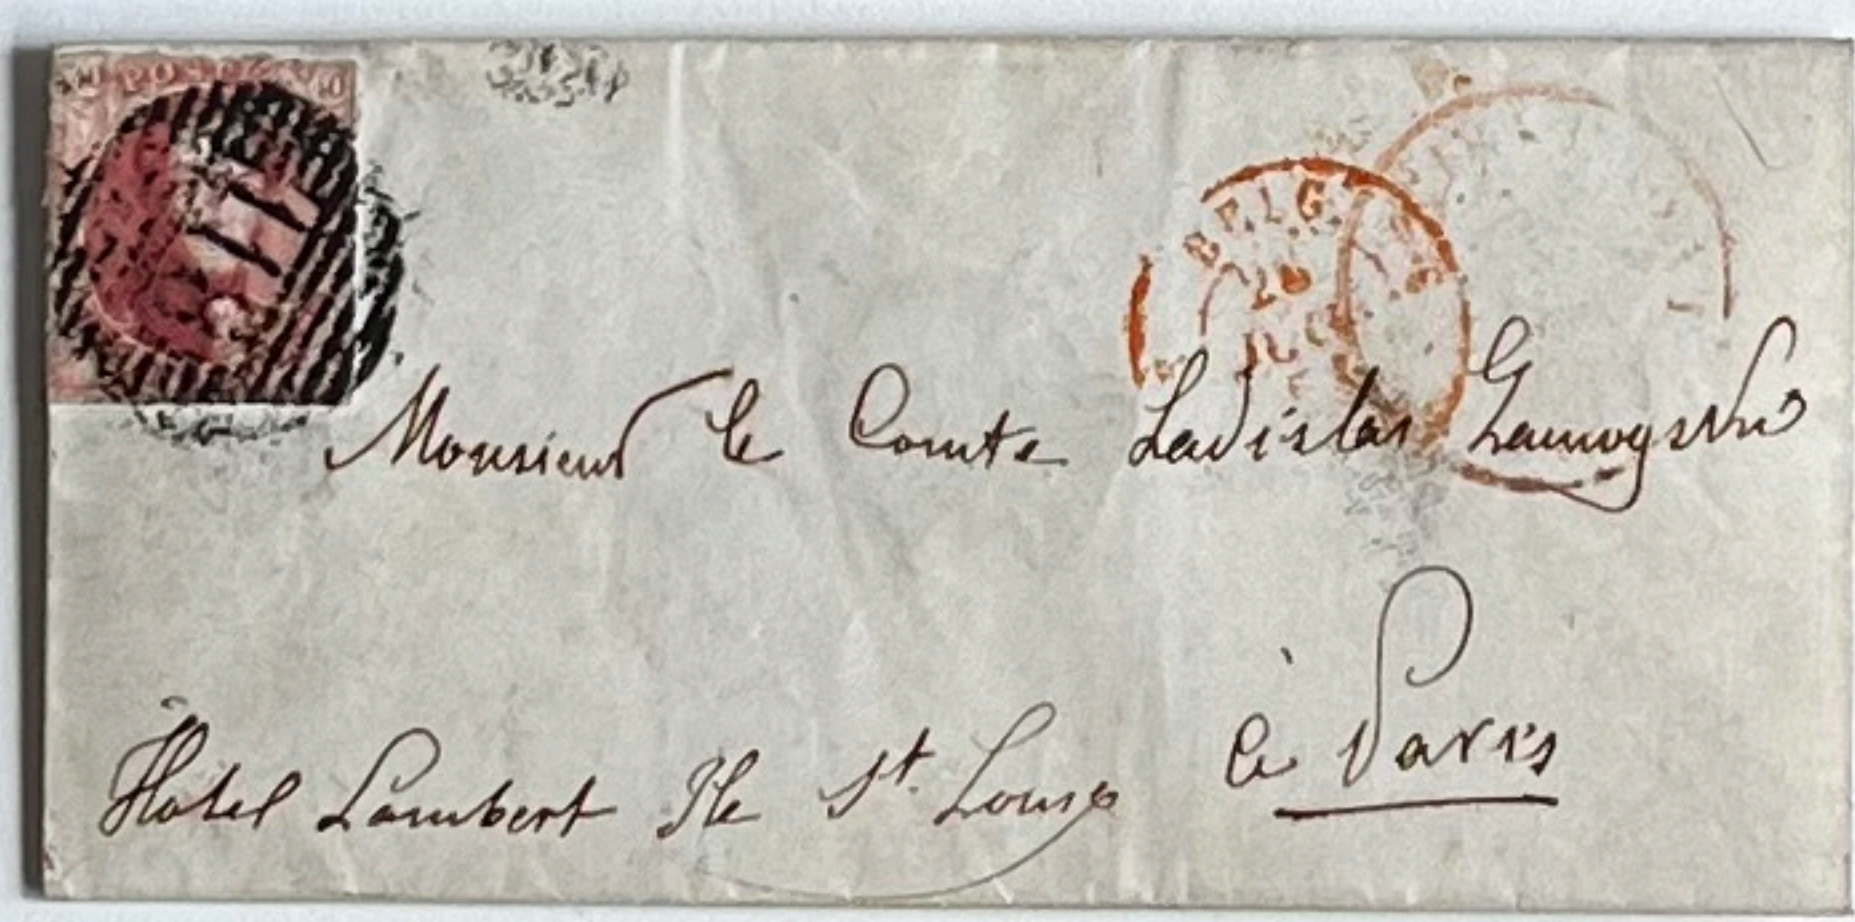 POSTES 40
BELG.
20
Monsieur le Comte Ladislas Zamoyski
à Paris
Hotel Lambert Ile St. Louis